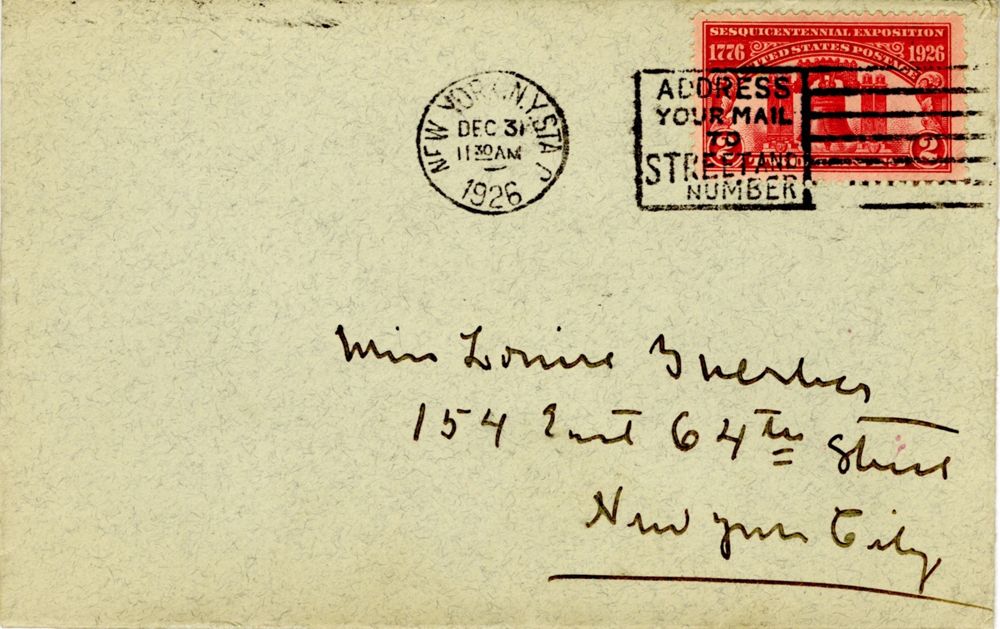 SESQUICENTENNIAL EXPOSITION
1776 UNITED STATES POSTAGE 1926
2 2
NEW YORK, N.Y. STA
DEC 31
11 30 AM
1926
ADDRESS
YOUR MAIL
TO
STREET AND
NUMBER
Miss Louise Guerber
154 East 64th Street
New York City